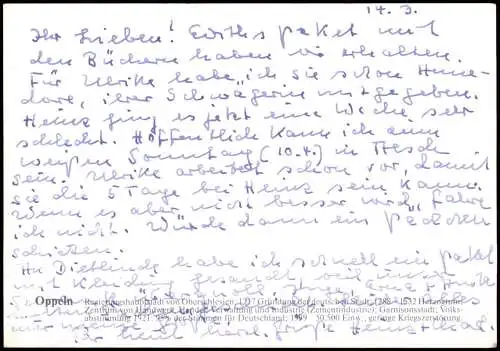 14. 3.
Ihr Lieben! Ediths Paket mit
den Büchern haben wir erhalten.
Für Ulrike habe ich sie schon Hane-
dore, ihrer Schwägerin mitgegeben.
Heinz ging es jetzt eine Woche sehr
schlecht. Hoffentlich kann ich zum
weißen Sonntag (10.4.) in
sein. Ulrike arbeitet schon vor, damit
sie die 5 Tage bei Heinz sein kann.
Wenn es aber nicht besser wird, fahre
ich nicht. Würde dann ein Päckchen
schicken.
An Dietlinde habe ich schnell ein Paket
mit Kleider gesandt, weil
Oppeln Regierungshauptstadt von Oberschlesien, 1217 Gründung der deutschen Stadt, 1288 - 1532 Herzogssitz
Zentrum von Handwerk, Handel, Verwaltung und Industrie (Zementindustrie); Garnisonsstadt; Volks-
abstimmung 1921: 95% der Stimmen für Deutschland; 1939 50.500 Einw., geringe Kriegszerstörung